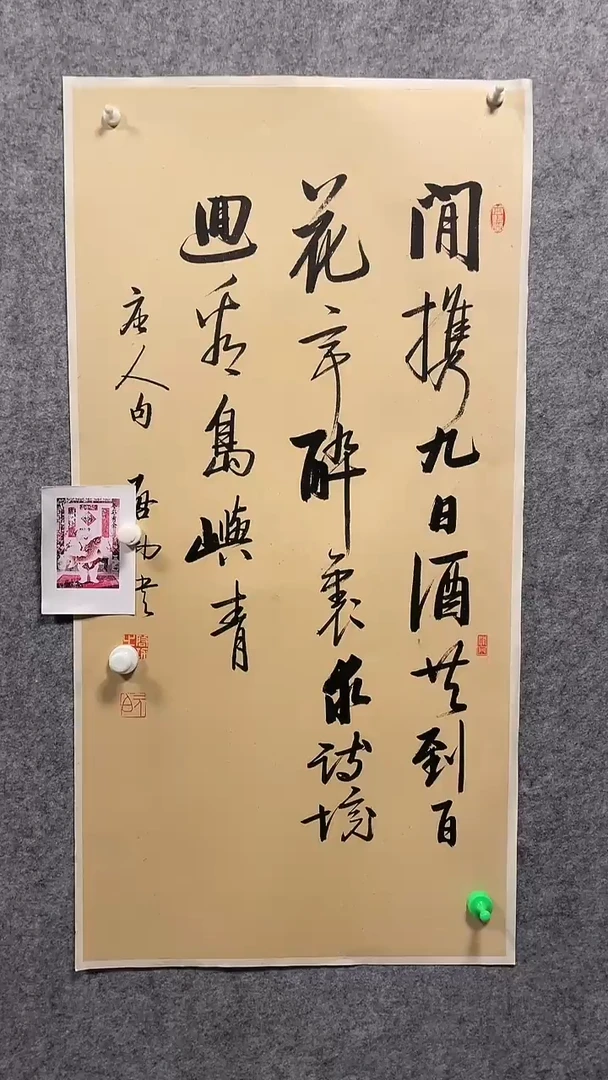 閒携九日酒共到百
花亭醉裏求詩境
迴看島嶼青
唐人句 啓功書